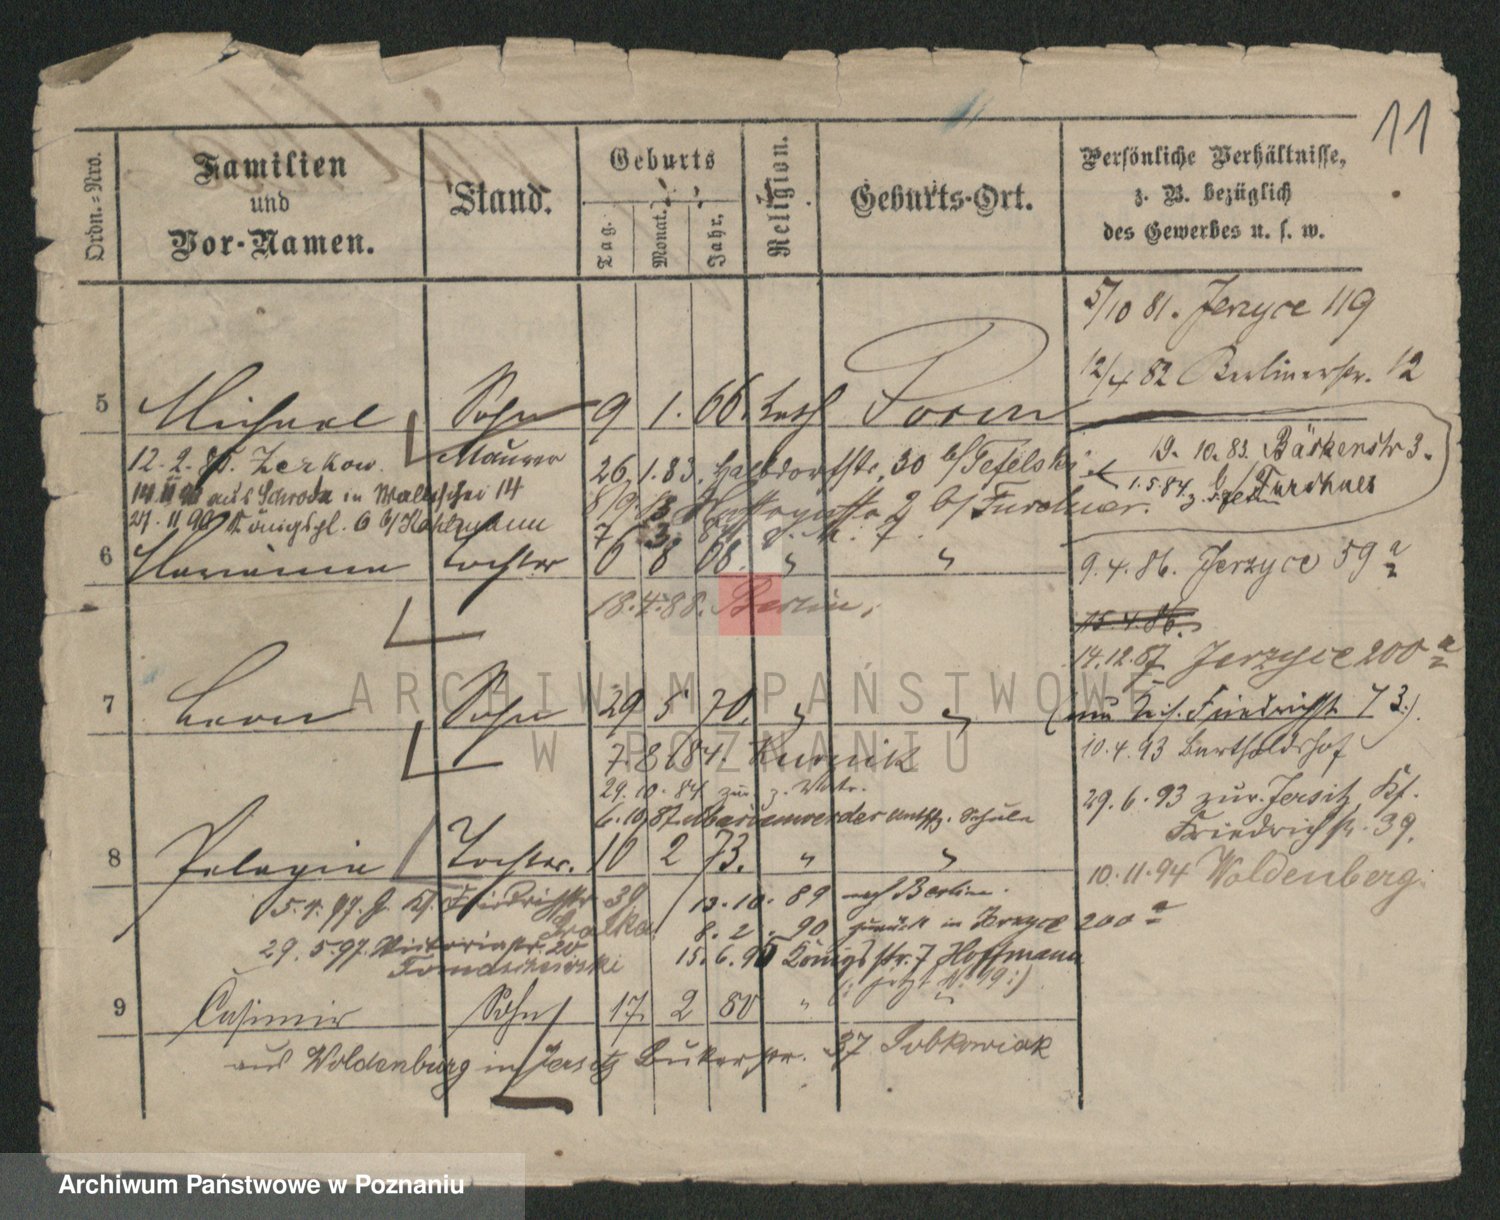 11
Ordn.-Nro.
Familien
und
Vor-Namen.
Stand.
Geburts
Tag.
Monat.
Jahr.
Religion.
Geburts-Ort.
Persönliche Verhältnisse,
z. B. bezüglich
des Gewerbes u. s. w.
5/10 81. Jerzyce 119
12/4 82 Berlinerstr. 12
5 Michael Sohn 9 1. 66. kath Posen
12. 2. 85. Zerkow. Maurer 26. 1. 83. Halbdorfstr. 30 b/Tefelski
19. 10. 83. Bäckerstr 3.
1. 5. 84. b/ Furchner
aus Schroda in Wallischei 14
8/9 2 b/ Furchner.
27. 11 90 Königspl. 6 b/ Kohlmann
7
6 Marianna Tochter 6 8 68. " "
9. 4. 86. Jerzyce 59 a
18. 4. 88. Berlin.
15. 4. 86.
14. 12. 87 Jerzyce 200 a
7 Leon Sohn 29 5 70. " "
Friedrichstr 73.)
7. 8. 84. Kurnik
10. 4. 93 Bartholdshof
29. 10. 84 zur.
29. 6. 93 zur. Jersitz, Kf.
6. 10 87. Marienwerder Schule
Friedrichstr. 39.
8 Pelagia Tochter. 10 2 73. " "
10. 11. 94 Woldenberg.
5. 4. 97. Kf. Friedrichstr 39
13. 10. 89 nach Berlin.
8. 2. 90 zurück in Jerzyce 200 a
29. 5. 97. Victoriastr. 20
15. 6. 95 Königsstr. 7 Hoffmann
Tomaszewski
(: jetzt N. 19 :)
9 Casimir Sohn 17. 2 80 "
aus Woldenburg in Jersitz Bukerstr. 37 Sobkowiak
ARCHIWUM PAŃSTWOWE
W POZNANIU
Archiwum Państwowe w Poznaniu